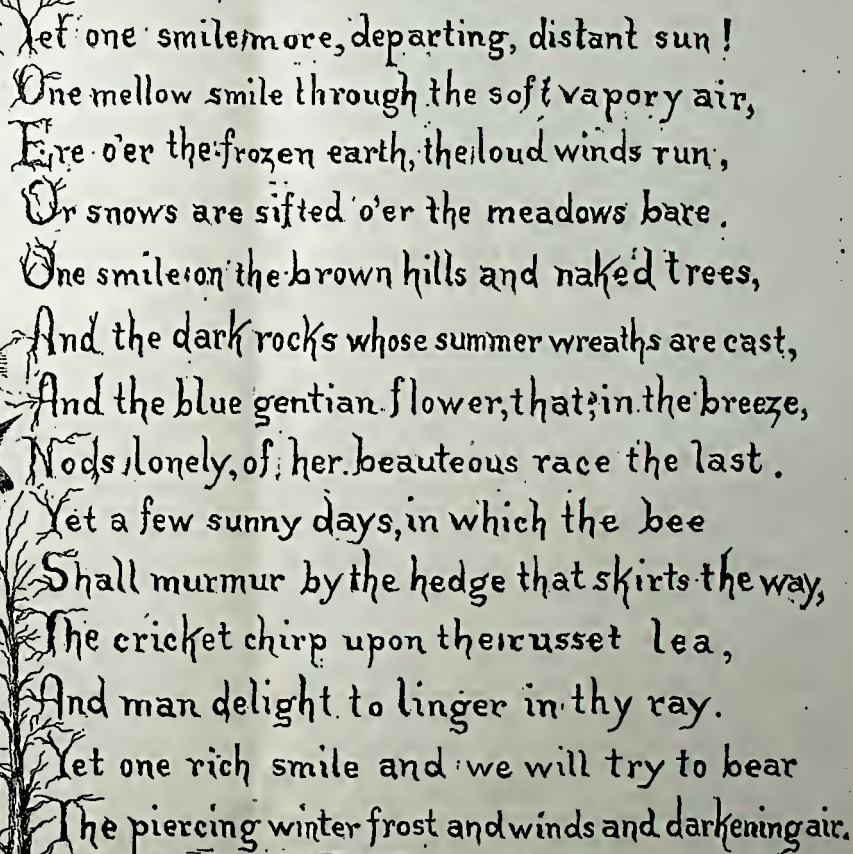 Yet one smile more, departing, distant sun!
One mellow smile through the soft vapory air,
Ere o'er the frozen earth, the loud winds run,
Or snows are sifted o'er the meadows bare.
One smile on the brown hills and naked trees,
And the dark rocks whose summer wreaths are cast,
And the blue gentian flower, that, in the breeze,
Nods lonely, of her beauteous race the last.
Yet a few sunny days, in which the bee
Shall murmur by the hedge that skirts the way,
The cricket chirp upon the russet lea,
And man delight to linger in thy ray.
Yet one rich smile and we will try to bear
The piercing winter frost and winds and darkening air.